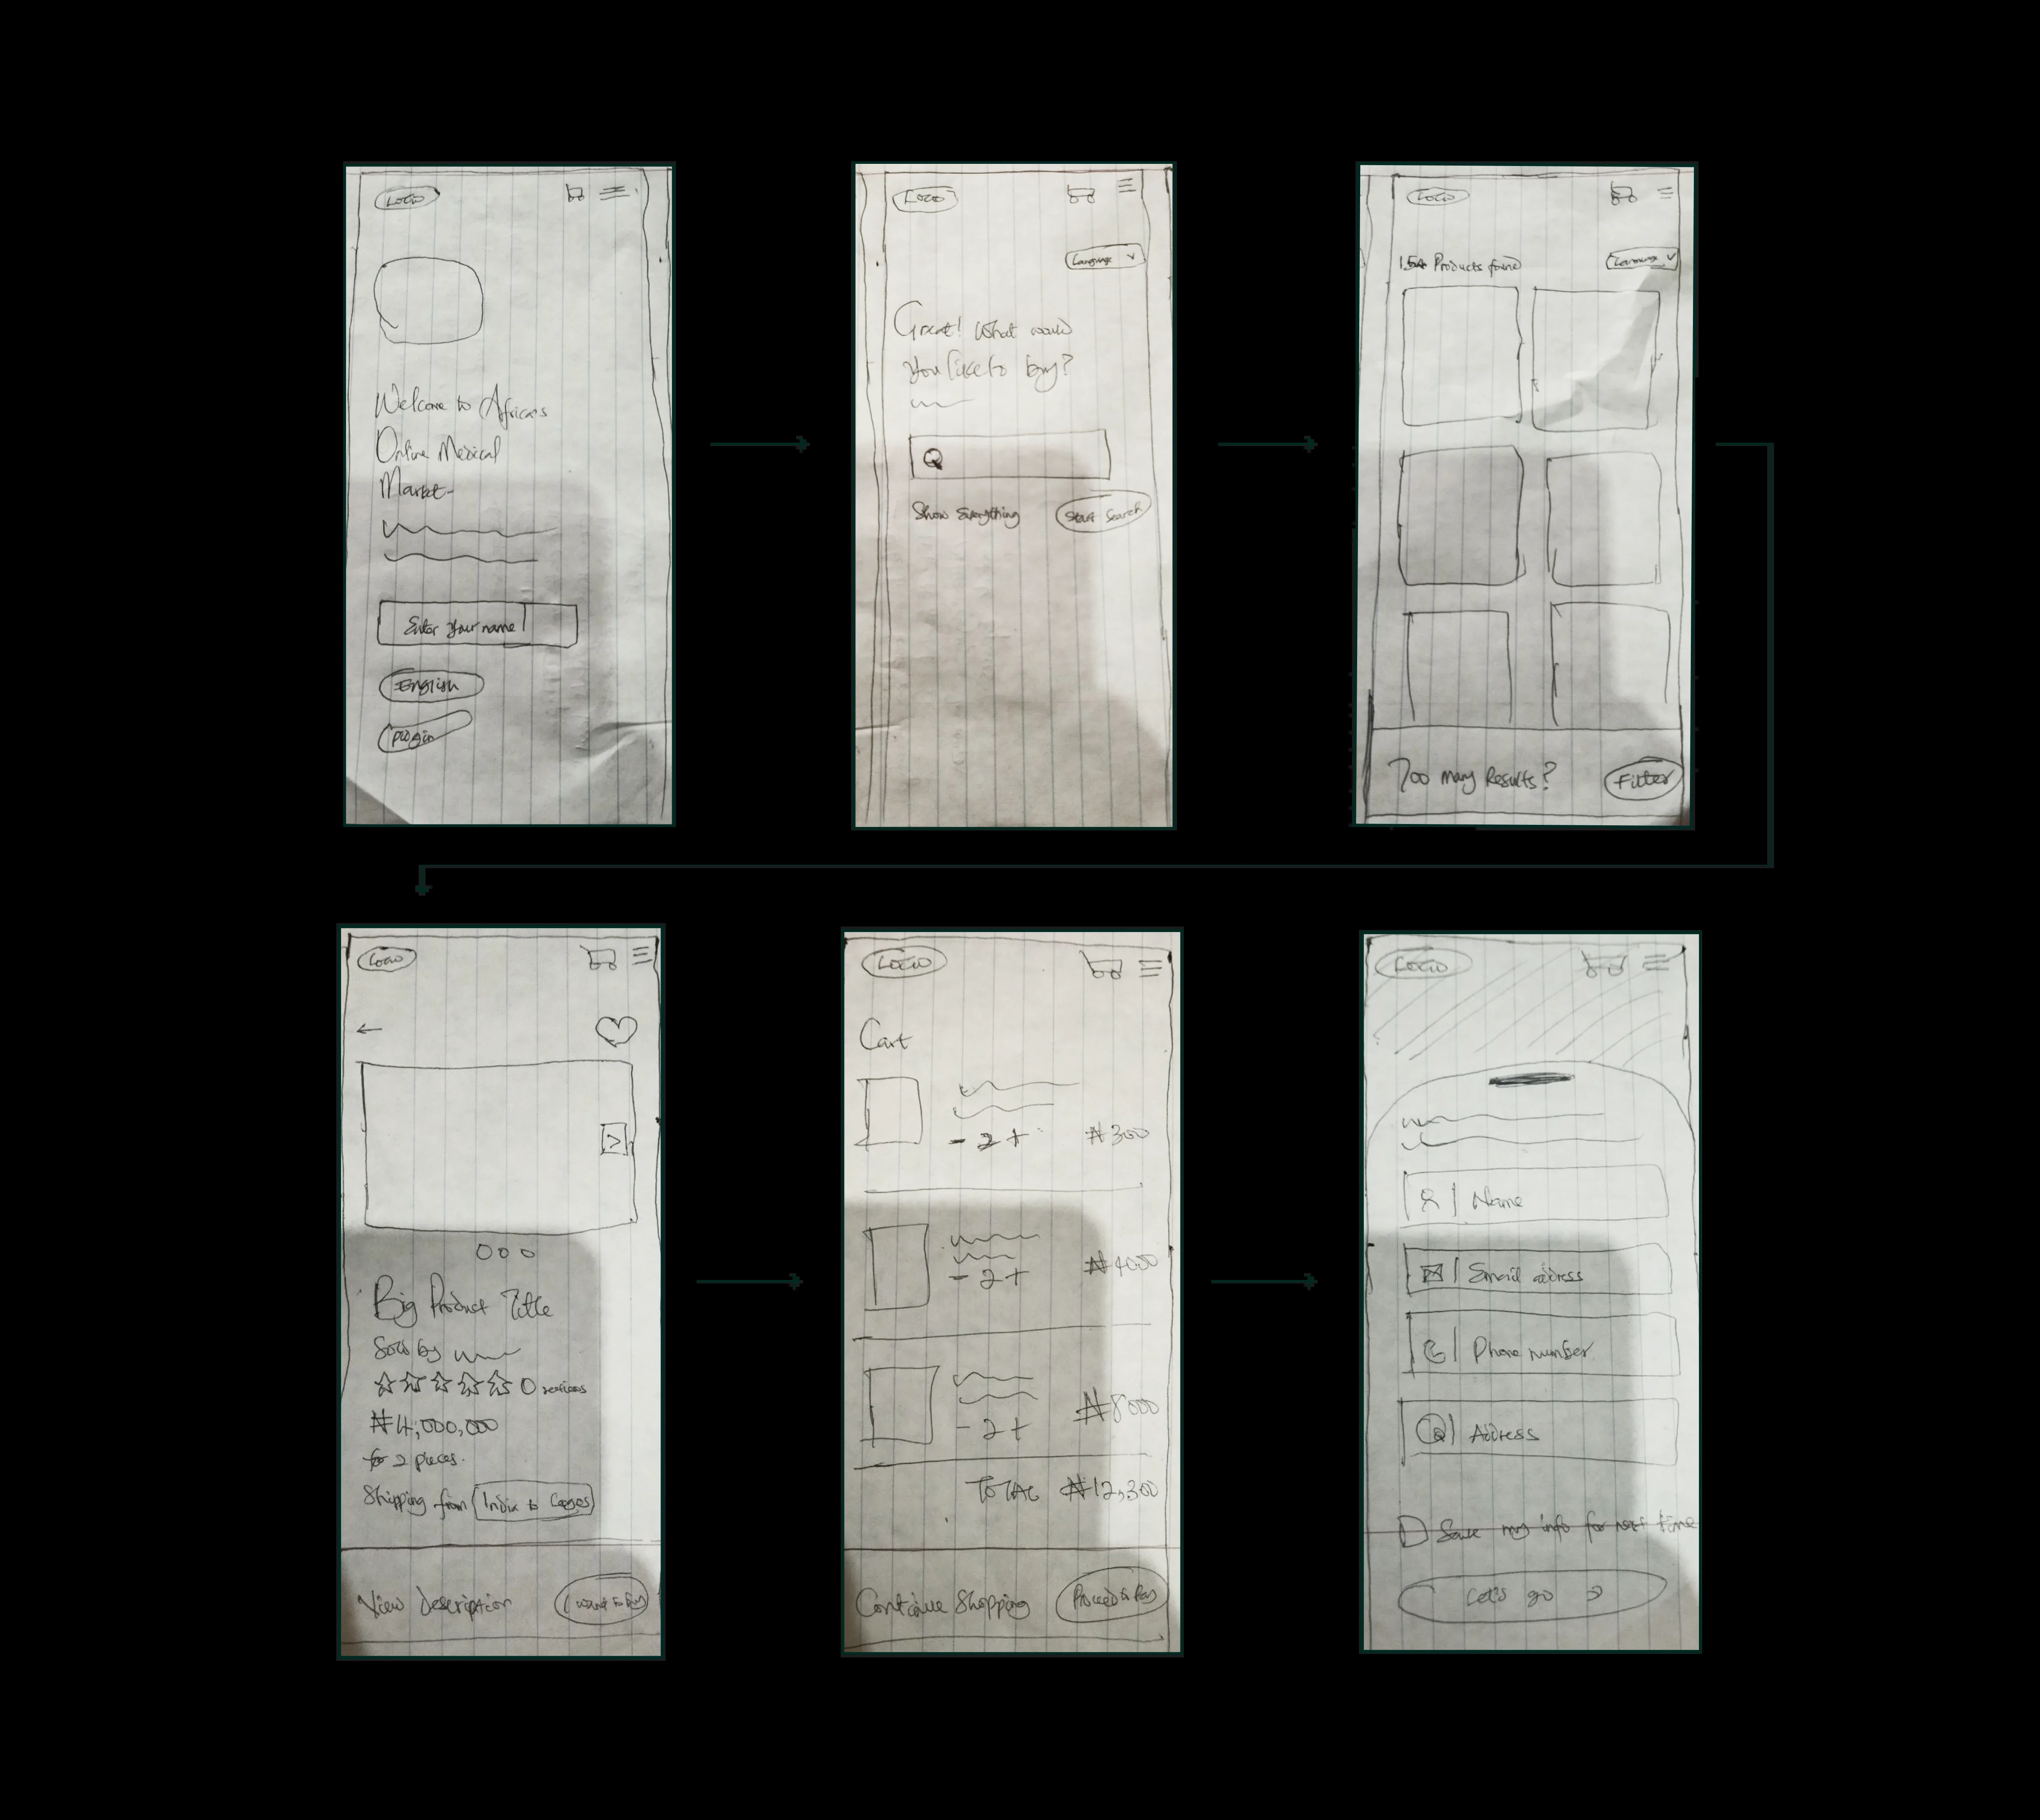 LOGO
Welcome to Africa's
Online Medical
Market
Enter your name
English
Pidgin
LOGO
Language
Great! What would
you like to buy?
Show Everything
Start Search
LOGO
Products found
Language
Too many Results?
Filter
LOGO
>
Big Product Title
Sold by
0 reviews
₦4,000,000
for 2 pieces.
Shipping from India to Lagos
View Description
I want to buy
LOGO
Cart
- 2 +
₦300
- 2 +
₦4000
- 2 +
₦8000
TOTAL ₦12,300
Continue Shopping
Proceed to Pay
LOGO
Name
Email address
Phone number
Address
Save my info for next time
Let's go